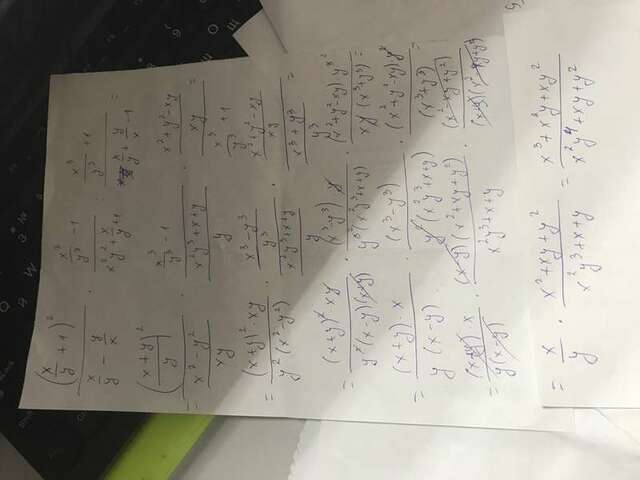 ((x/y + 1)^2)/(x/y - y/x) · (x^3/y^3 - 1)/(x^2y^2 + x/y + 1) · (x^3/y^3 + 1)/(x/y + y/x - 1) =
= (((x+y)/y)^2)/((x^2 - y^2)/(xy)) · (x^3/y^3 - 1)/((x^2y^3+x+y)/y) · ((x^2+y^2-xy)/(xy))/(x^3/y^3 + 1) =
= ((x+y)^2 · xy)/(y^2(x^2-y^2)) · ((x^3-y^3)/y^3)/((x^2y^3+x+y)/y) · ((x^2+y^2-xy)/(xy))/((x^3+y^3)/y^3) =
= ((x+y)^2 · xy)/(y^2(x-y)(x+y)) · ((x^3-y^3) y)/(y^3(x^2y^3+x+y)) · ((x^2+y^2-xy) y^3)/(xy (x^3+y^3)) =
= ((x+y) · x)/(y (x-y)) · (x^3-y^3)/(y^2(x^2y^3+x+y)) · ((x^2+y^2-xy) y^2)/(x^3+y^3) =
= ((x+y) x)/(y(x-y)) · ((x-y)(x^2+xy+y^2))/(x^2y^3+x+y) · (x^2-xy+y^2)/((x+y)(x^2-xy+y^2))
= x/y · (x^2+xy+y^2)/(x^2y^3+x+y) = (x^3+x^2y+xy^2)/(x^2y^4+xy+y^2)